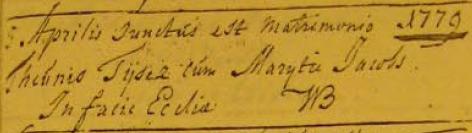 Aprilis Junctus est Matrimonio 1779
Theunis Tijsex cum Marytie Jacobs.
In facie Eccliæ WB